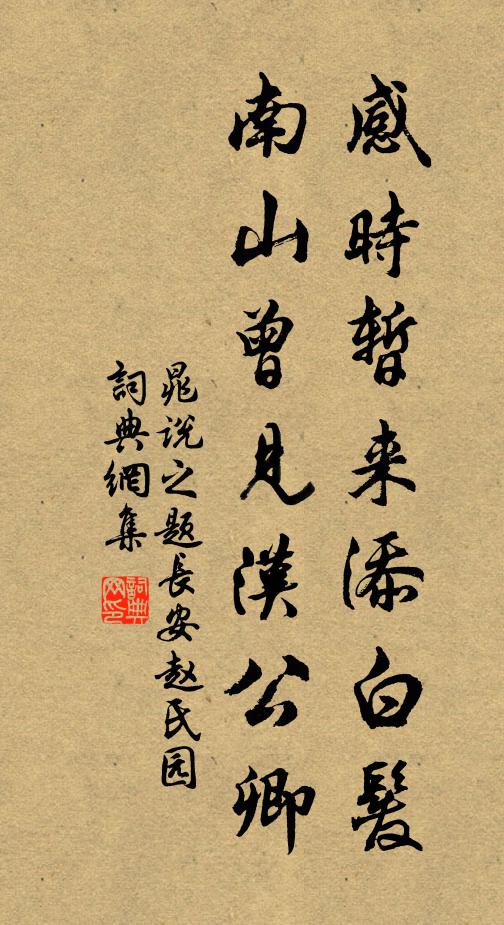 感時暫来添白髮
南山曾見漢公卿
晁说之题長安赵氏园
詞典網集
詞典网印